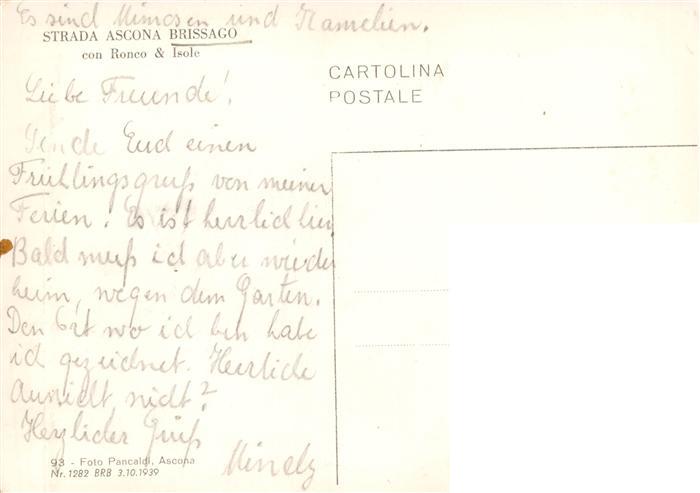 Es sind Mimosen und Kamelien.
STRADA ASCONA BRISSAGO
con Ronco & Isole
CARTOLINA
POSTALE
Liebe Freunde!
Sende Euch einen
Frühlingsgruß von meinen
Ferien. Es ist herrlich hier
Bald muß ich aber wieder
heim, wegen dem Garten.
Den Ort wo ich bin habe
ich gezeichnet. Herrliche
Aussicht nicht?
Herzlicher Gruß
93 - Foto Pancaldi, Ascona
Nr. 1282 BRB 3.10.1939